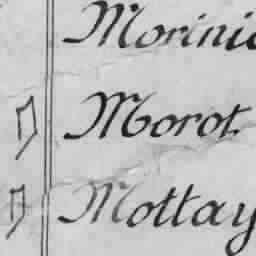 Morinie
Morot.
Mottay